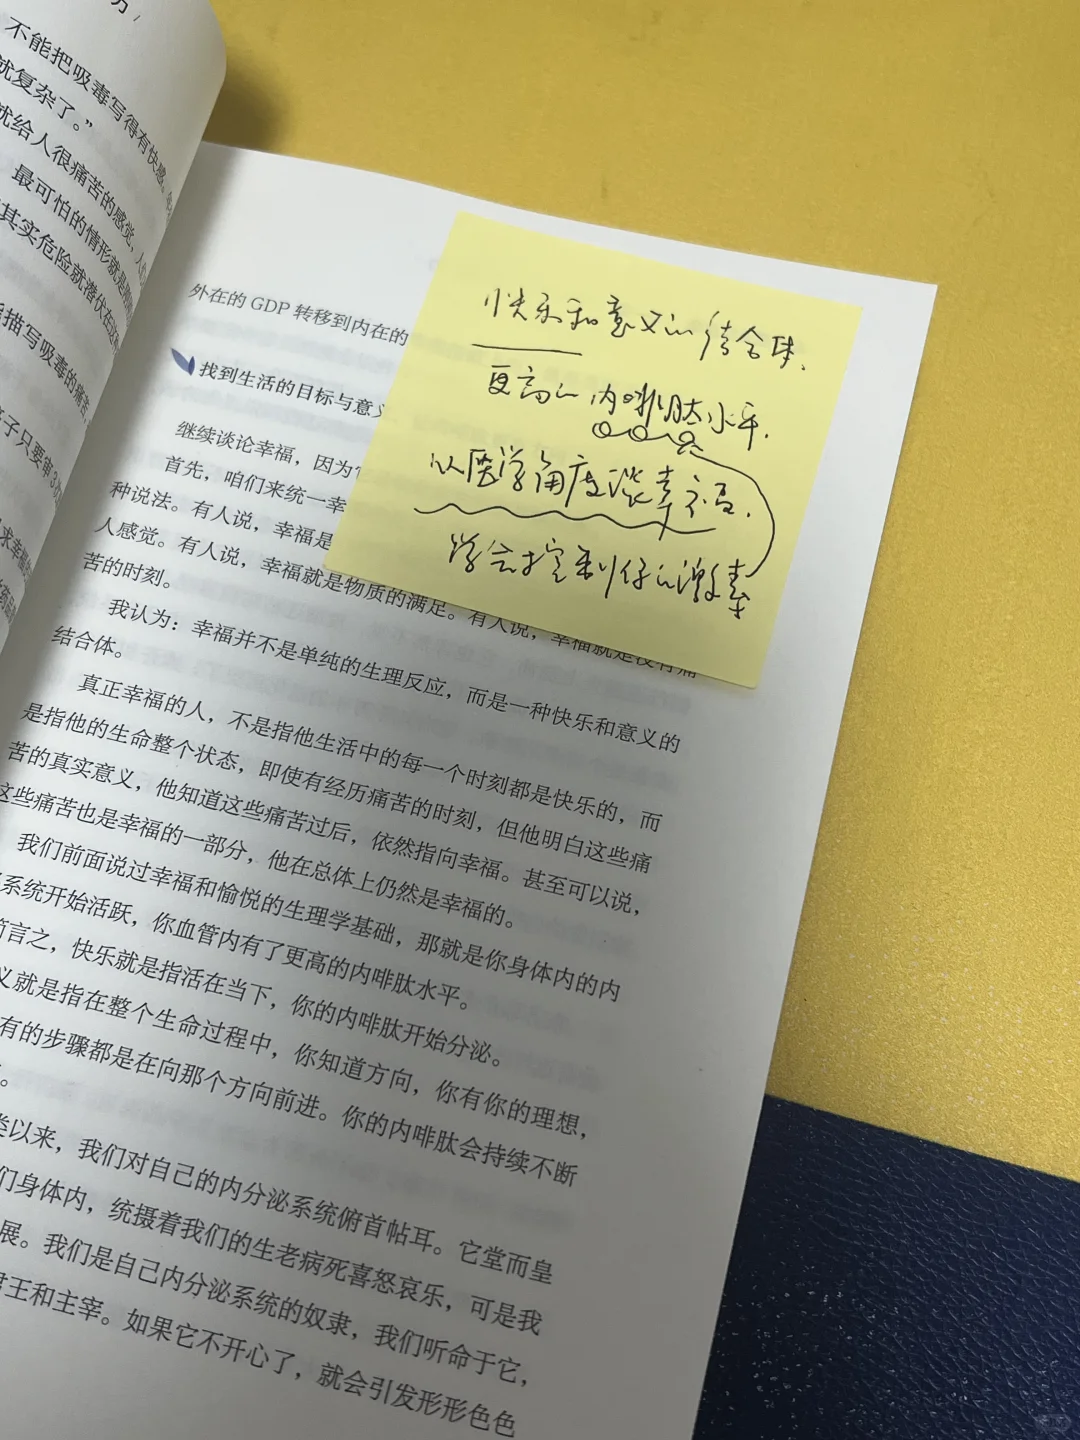 不能把吸毒写得有快感。
就复杂了。”
就给人很痛苦的感觉，
最可怕的情形就是
其实危险就潜伏在
描写吸毒的痛苦，
子只要审
外在的 GDP 转移到内在的
找到生活的目标与意义
继续谈论幸福，因为
首先，咱们来统一幸
种说法。有人说，幸福是
人感觉。有人说，幸福就是物质的满足。有人说，幸福就是没有痛
苦的时刻。
我认为：幸福并不是单纯的生理反应，而是一种快乐和意义的
结合体。
真正幸福的人，不是指他生活中的每一个时刻都是快乐的，而
是指他的生命整个状态，即使有经历痛苦的时刻，但他明白这些痛
苦的真实意义，他知道这些痛苦过后，依然指向幸福。甚至可以说，
这些痛苦也是幸福的一部分，他在总体上仍然是幸福的。
我们前面说过幸福和愉悦的生理学基础，那就是你身体内的内
系统开始活跃，你血管内有了更高的内啡肽水平。
言之，快乐就是指活在当下，你的内啡肽开始分泌。
义就是指在整个生命过程中，你知道方向，你有你的理想，
有的步骤都是在向那个方向前进。你的内啡肽会持续不断
。
类以来，我们对自己的内分泌系统俯首帖耳。它堂而皇
们身体内，统摄着我们的生老病死喜怒哀乐，可是我
展。我们是自己内分泌系统的奴隶，我们听命于它，
君王和主宰。如果它不开心了，就会引发形形色色
快乐和意义的结合体.
更高的内啡肽水平.
从医学角度谈幸福.
学会控制你的激素